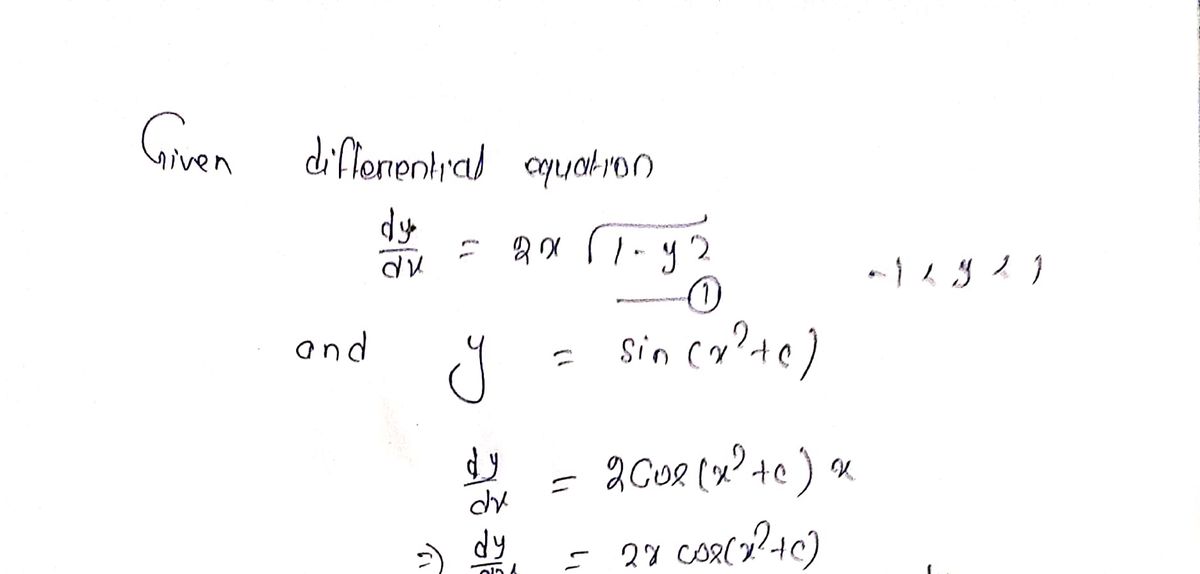 Given differential equation
dy/dx = 2x √(1-y²) -1 < y < 1
①
and y = sin(x²+c)
dy/dx = 2cos(x²+c) x
=> dy/dx = 2x cos(x²+c)